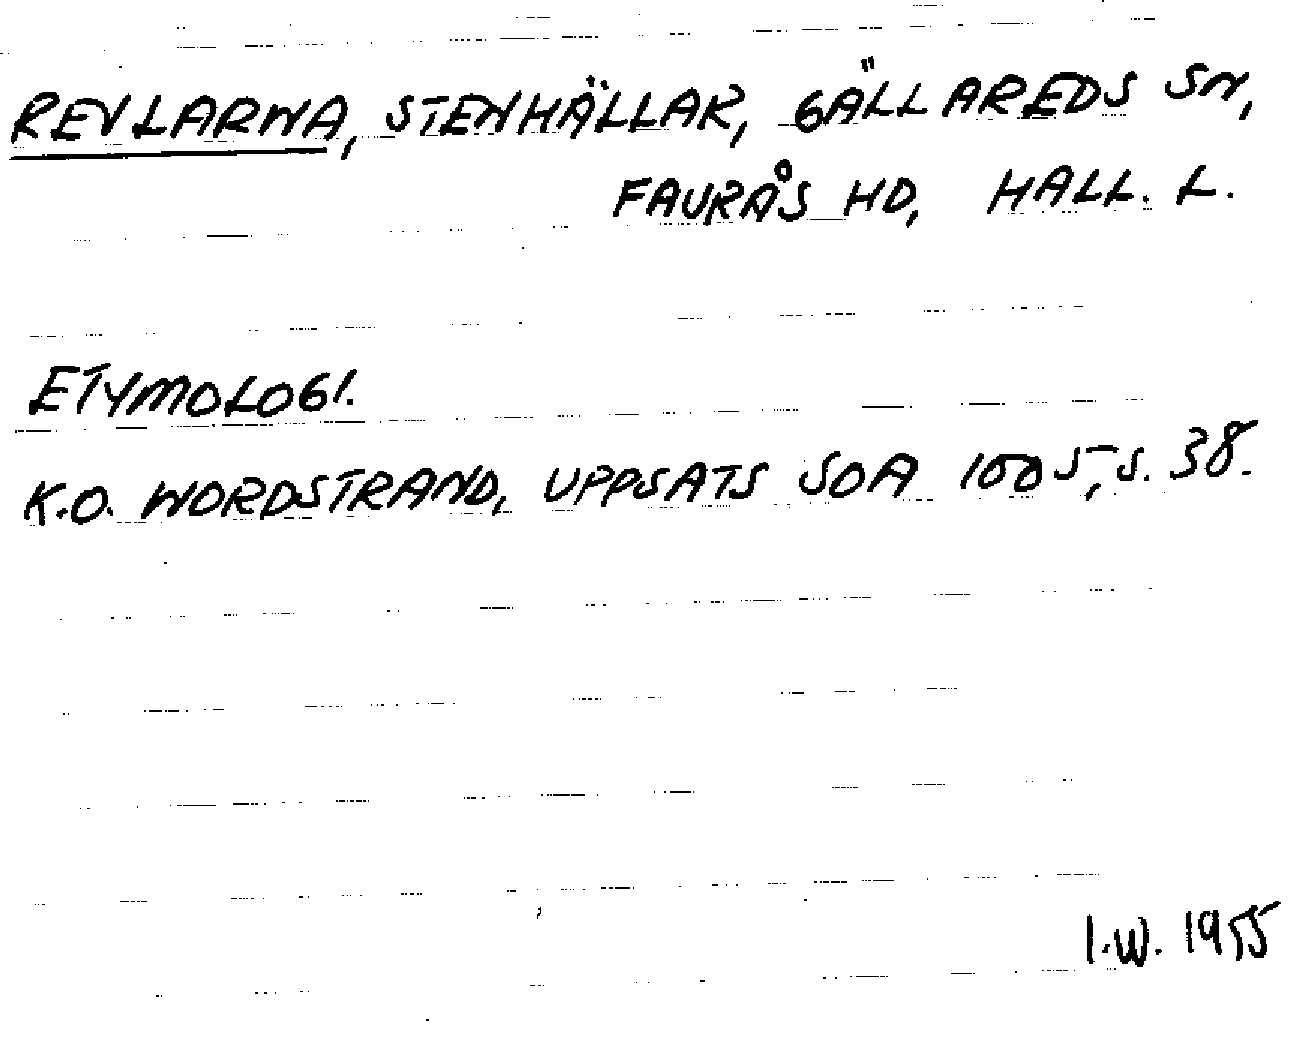 REVLARNA, STENHÄLLAR, GÄLLAREDS SN,
FAURÅS HD, HALL. L.
ETYMOLOGI.
K.O. NORDSTRAND, UPPSATS SOA 1005, S. 38.
I.W. 1955